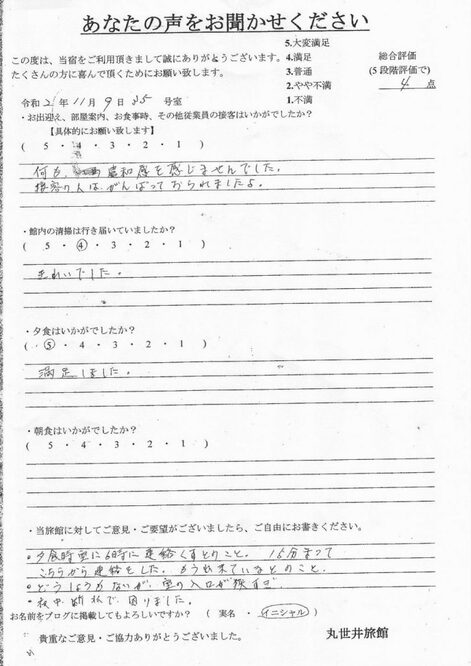 あなたの声をお聞かせください
この度は、当宿をご利用頂きまして誠にありがとうございます。
たくさんの方に喜んで頂くためにお願い致します。
5.大変満足
4.満足
3.普通
2.やや不満
1.不満
総合評価
(5段階評価で)
4 点
令和2年11月9日 35 号室
・お出迎え、部屋案内、お食事時、その他従業員の接客はいかがでしたか?
【具体的にお願い致します】
( 5 ・ 4 ・ 3 ・ 2 ・ 1 )
何も、違和感を感じませんでした。
接客の人は、がんばっておられましたよ。
・館内の清掃は行き届いていましたか?
( 5 ・ 4 ・ 3 ・ 2 ・ 1 )
きれいでした。
・夕食はいかがでしたか?
( 5 ・ 4 ・ 3 ・ 2 ・ 1 )
満足しました。
・朝食はいかがでしたか?
( 5 ・ 4 ・ 3 ・ 2 ・ 1 )
・当旅館に対してご意見・ご要望がございましたら、ご自由にお書きください。
・夕食時室に6時に連絡くるとのこと。15分まって
こちらから連絡をした。もう出来ているとのこと。
・どうしようもないが、室の入口が狭すぎ
・夜中 断水で、困りました。
お名前をブログに掲載してもよろしいですか? ( 実名 ・ イニシャル )
貴重なご意見・ご協力ありがとうございました。
丸世井旅館